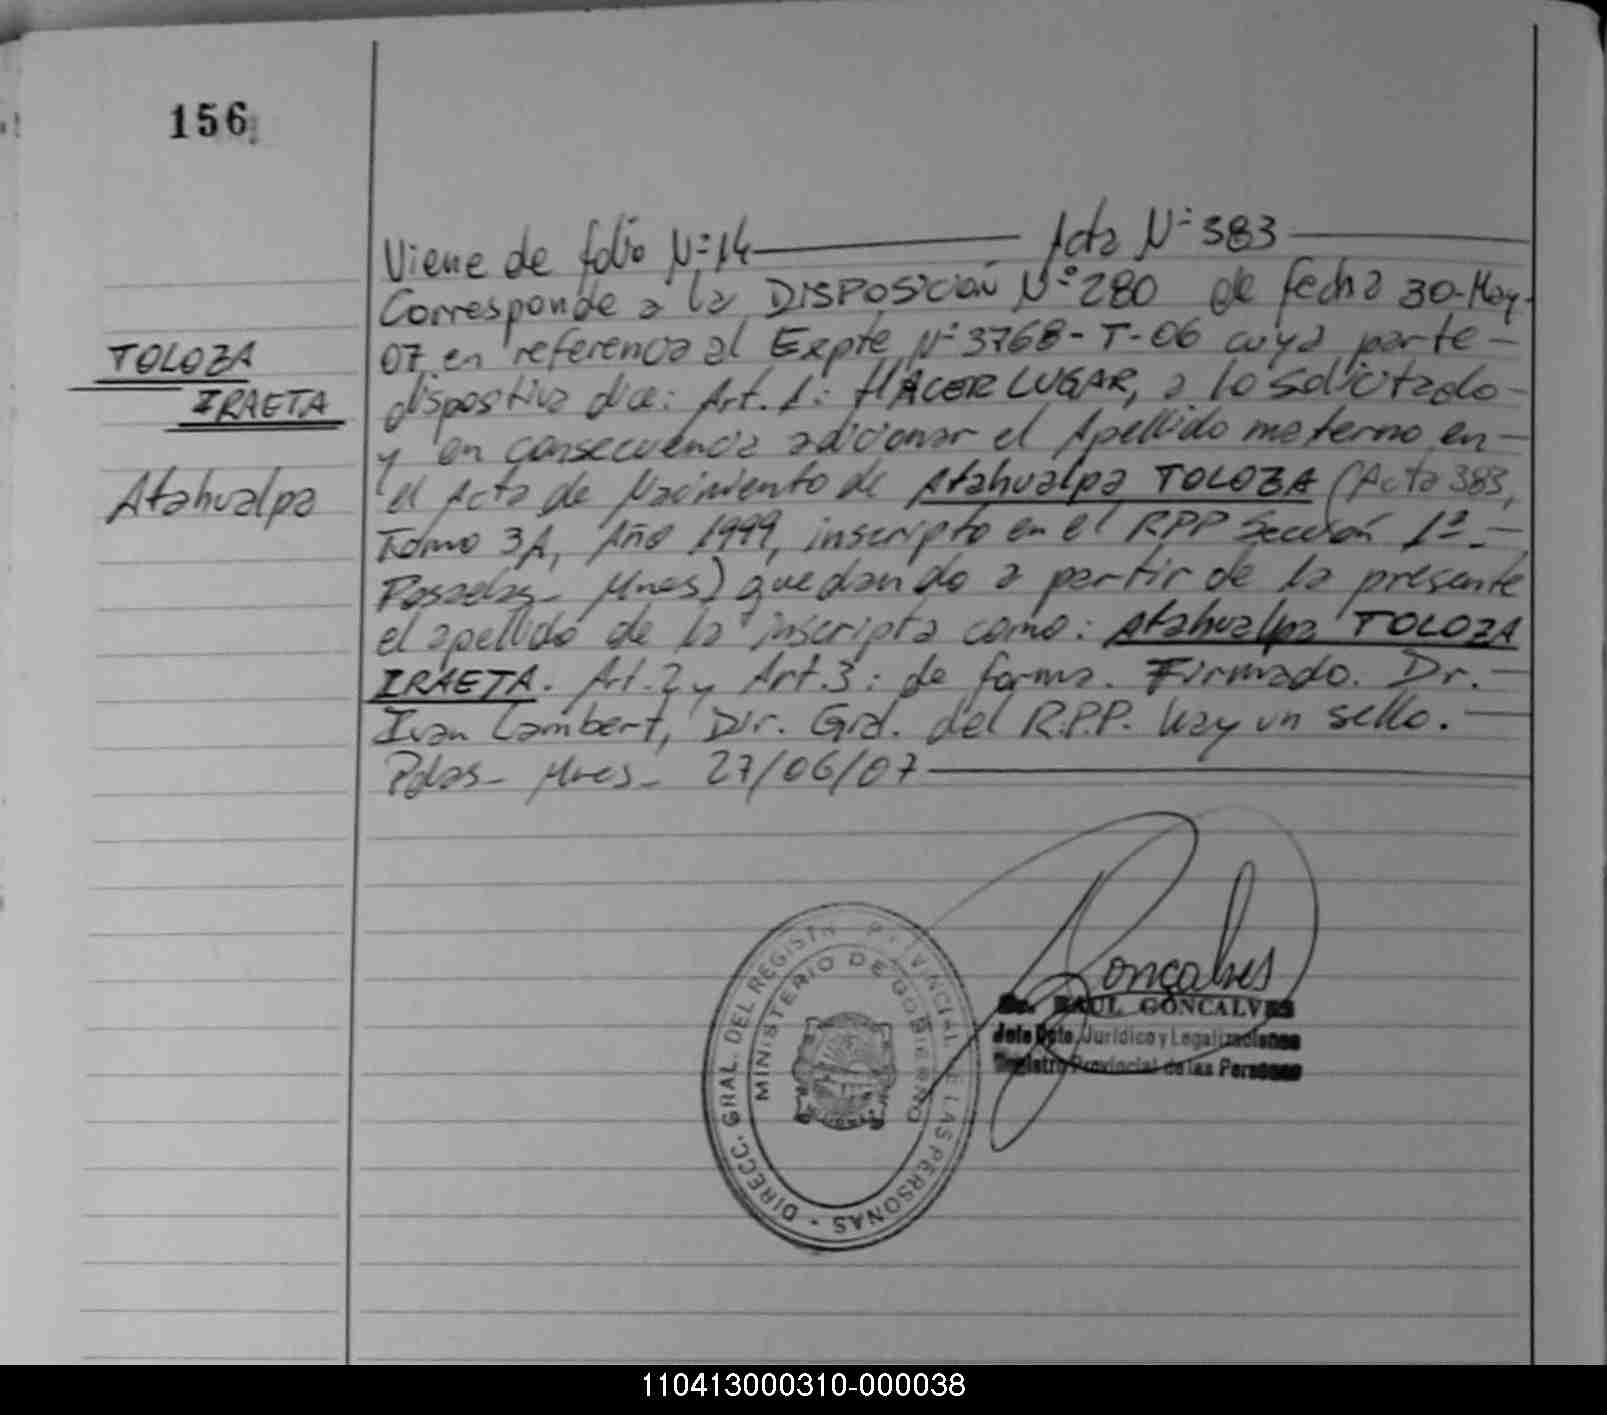 156
Viene de folio Nº 14 Acta Nº 383
Corresponde a la DISPOSICIÓN Nº 280 de fecha 30-May-
07, en referencia al Expte Nº 3768-T-06 cuya parte
TOLOZA
dispositiva dice: Art. 1: HACER LUGAR, a lo solicitado
IRAETA
y en consecuencia adicionar el Apellido materno en
el Acta de Nacimiento de Atahualpa TOLOZA (Acta 383,
Atahualpa
Tomo 3A, Año 1999, inscripto en el RPP Sección 1ª-
Posadas- Mnes) quedando a partir de la presente
el apellido de la inscripta como: Atahualpa TOLOZA
IRAETA. Art. 2 y Art. 3: de forma. Firmado. Dr.
Ivan Lambert, Dir. Gral. del R.P.P. hay un sello.
Pdas- Mnes- 27/06/07
Goncalves
Dr. RAUL GONCALVES
Jefe Dpto. Jurídico y Legalizaciones
Registro Provincial de las Personas
DIRECC. GRAL. DEL REGISTRO PROVINCIAL DE LAS PERSONAS
MINISTERIO DE GOBIERNO
110413000310-000038